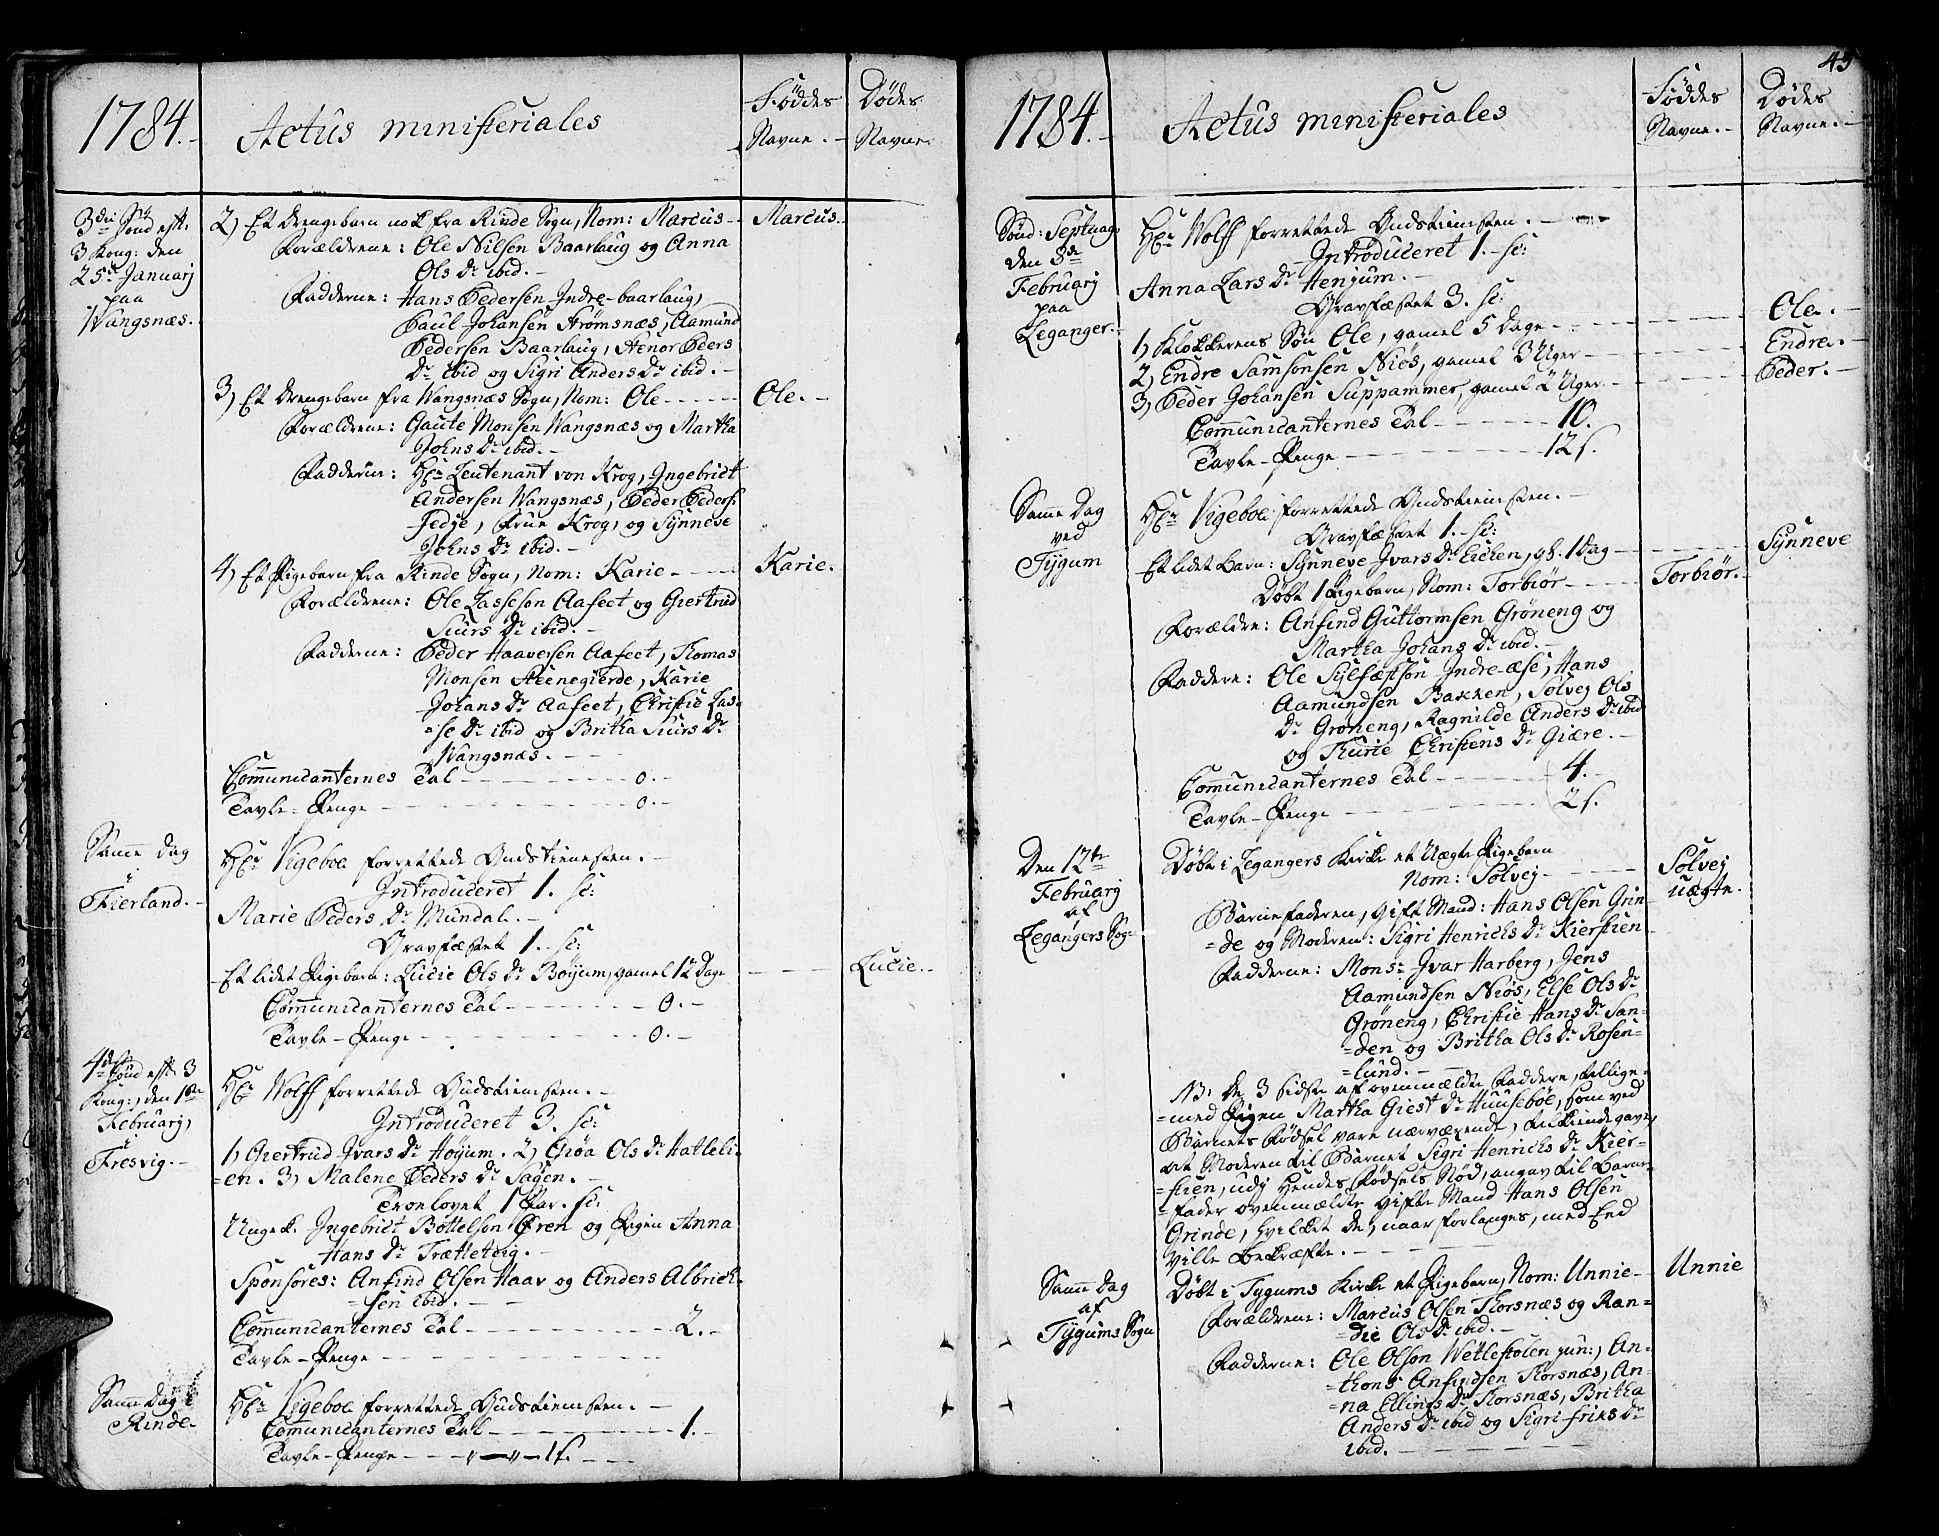 1784.-
Actus ministeriales
Føddes
Navne.-
Dødes
Navne.
3die Sønd. eft.
3 Kong: den
25de Januarj
paa
Wangsnæs.
2) Et drengebarn nok fra Rinde Sogn, Nom: Marcus-
Marcus.
Forældrene: Ole Nilsen Baarlaug og Anna
Ols Dr ibid.-
Fadderne: Hans Pedersen Indre-baarlaug,
Paul Johansen Strømsnæs, Aamund
Pedersen Baarlaug, Aenor Peers
Dr ibid og Sigri Anders Dr ibid.-
3) Et drengebarn fra Wangsnæs Sogn, Nom: Ole
Ole.-
Forældrene: Gaute Monsen Wangsnæs og Martha
Johns Dr ibid.-
Fadderne: Hr Leutenant von Krog, Ingebrict
Andersen Wangsnæs, Peder Peders.
Fedje, Frue Krog, og Synneve
Johns Dr ibid.-
4) Et Pigebarn fra Rinde Sogn, Nom: Karie
Karie.
Forældrene: Ole Lasseson Aafeet og Giertrud
Siurs Dr ibid.-
Fadderne: Peder Haaversen Aafeet, Thomas
Monsen Steenegierde, Karie
Johans Dr Aafeet, Christie Las=
=se Dr ibid og Britha Siurs Dr
Wangsnæs.
Communicanternes Tal - 0.-
Tavle-Penge - 0.-
Samme dag
i
Fierland.-
Hr Vigeboe forrettede Gudstienesten.-
Introduceret 1. sc:
Marie Peders Dr Mundal.-
Gravfæstet 1. sc:
Et lidet Pigebarn: Lucie Ols Dr Bøyum, gamel 12 Dage
Lucie.-
Communicanternes Tal - 0.-
Tavle-Penge - 0.-
4de Sønd eft. 3
Kong:, den 1ste
Februarj,
i
Fresvig.-
Hr Wolff forrettede Gudstienesten.-
Introduceret 3. sc:
1) Giertrud Ivars Dr Høyum. 2) Grøa Ols Dr Hatteli=
=en. 3) Malene Peders Dr Sagen.-
Trolovet 1 Par. sc:
Ungek. Ingebrict Bøttelson Øren og Pigen Anna
Hans Dr Trætteteig.-
Sponsores: Anfind Olsen Haav og Anders Albrict=
=sen ibid.
Communicanternes Tal - 2.-
Tavle-Penge
Samme Dag i
Rinde.
Hr Vigeboe forrettede Gudstienesten.-
Communicanternes Tal - 1.-
Tavle-Penge - 1 s.
45
1784.-
Actus ministeriales
Føddes
Navne.-
Dødes
Navne.-
Sønd: Septuag.
den 8de
Februarj
paa
Leganger.
Hr Wolff forrettede Gudstienesten.-
Introduceret 1.- sc:
Anna Lars Dr Henjum.-
Gravfæstet 3. sc:
1) Klokkerens Søn Ole, gamel 5 Dage
Ole.-
2) Endre Samsonsen Niøs, gamel 3 Uger
Endre.-
3) Peder Johansen Suppammer, gamel 2 Uger.
Peder.-
Communicanternes Tal - 10.
Tavle-Penge - 12 s.
Samme Dag
ved
Tygum
Hr Vigeboe forrettede Gudstienesten.-
Gravfæstet 1. sc:
Et lidet Barn: Synneve Ivars Dr Eichen, gl. 1 Dag
Synneve
Døbt 1 Pigebarn, Nom: Torbiør
Torbiør.-
Forældre: Anfind Guttormsen Grøneng og
Martha Johans Dr ibid.-
Faddere: Ole Sylfæstson Indre-æse, Hans
Aamundsen Bakken, Sølvej Ols
Dr Grøneng, Ragnilde Anders Dr ibid
og Thurie Christens Dr Giære.-
Communicanternes Tal - 4.
Tavle-Penge - 2 s.
Den 12te
Februarj
af
Legangers Sogn
Døbt i Legangers Kirke et Uægte Pigebarn
Nom: Sølvej
Sølvej
uægte.
Barnefaderen, gift Mand: Hans Olsen Grin=
=de og Moderen: Sigri Henrichs Dr Kierstien
Fadderne: Monsr Ivar Harberg, Jens
Aamundsen Niøs, Else Ols Dr
Grøneng, Christie Hans Dr San=
=den og Britha Ols Dr Rosen=
=lund.-
NB. De 3 sidste af ovenmældte Faddere, tillige=
=med Pigen Martha Giest Dr Huusebøe, som ved
Barnets Fødsel vare nærværende, tilkiendegave,
at Moderen til Barnet Sigri Henrichs Dr Kier=
=stien, udj hendes Fødsels Nød, angav til Barne=
=fader ovenmældte gifte Mand Hans Olsen
Grinde, hvilket de, naar forlanges, med Eed
ville bekræfte.
Samme Dag
af
Tygums Sogn
Døbt i Tygums Kirke et Pigebarn, Nom: Unnie
Unnie
Forældrene: Marcus Olsen Thorsnæs og Ran=
=die Ols Dr ibid.-
Fadderne: Ole Olson Wetlestølen jun:, An=
=thoni Anfindsen Thorsnæs, An=
=na Ellings Dr Thorsnæs, Britha
Anders Dr ibid og Sigri Friks Dr
ibid.